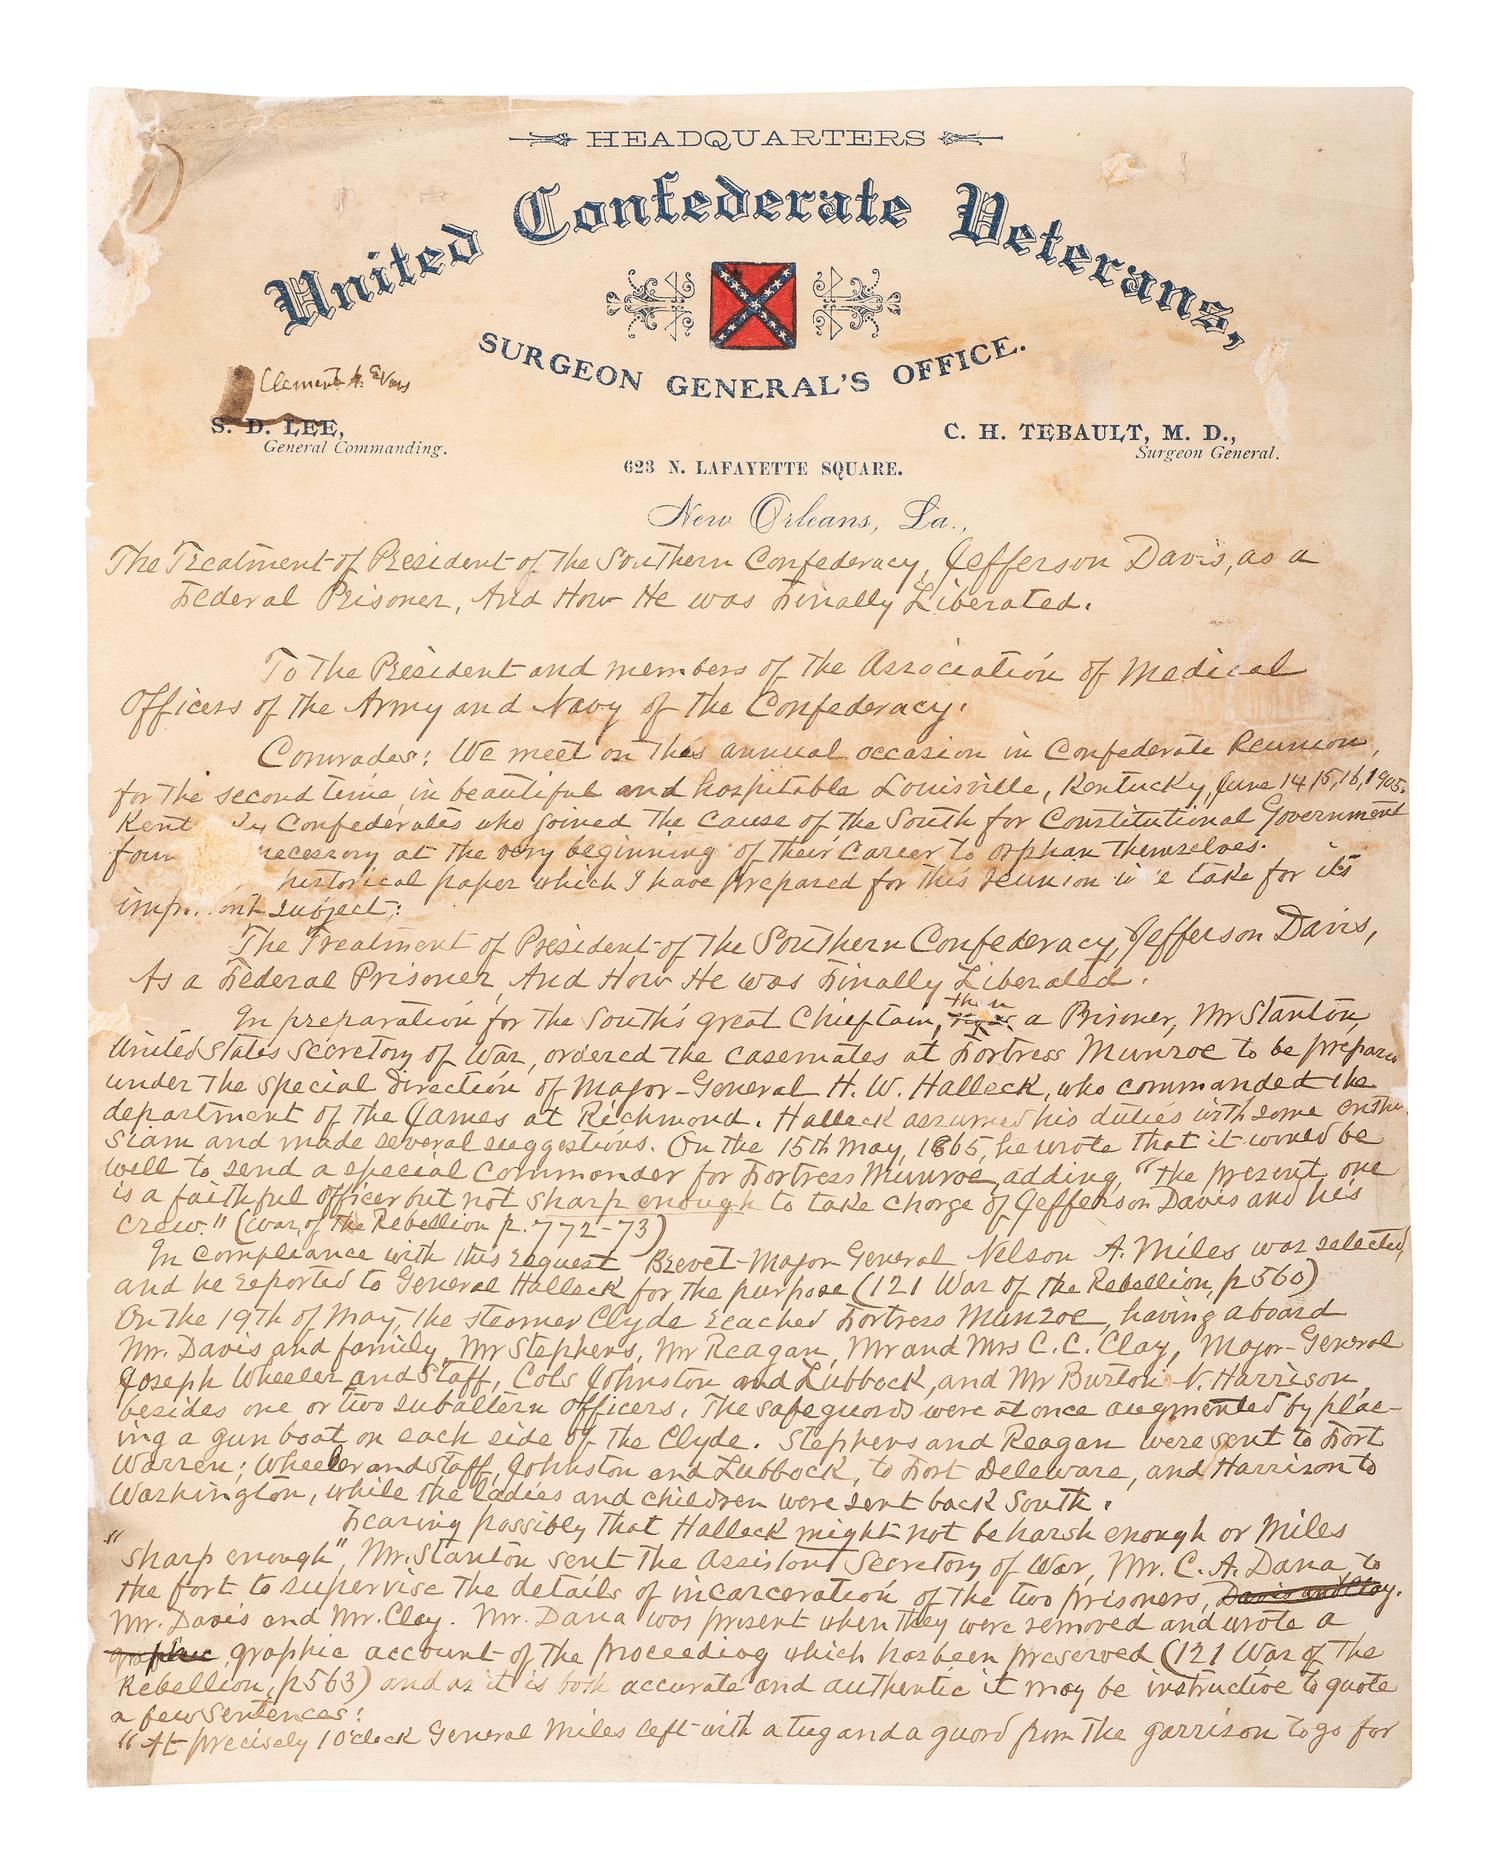 HEADQUARTERS
United Confederate Veterans,
SURGEON GENERAL'S OFFICE.
Clement A. Evans
S. D. LEE,
General Commanding.
C. H. TEBAULT, M. D.,
Surgeon General.
623 N. LAFAYETTE SQUARE.
New Orleans, La.,
The Treatment of President of the Southern Confederacy, Jefferson Davis, as a
Federal Prisoner, And How He was Finally Liberated.
To the President and members of the Association of Medical
Officers of the Army and Navy of the Confederacy.
Comrades: We meet on this annual occasion in Confederate Reunion,
for the second time in beautiful and hospitable Louisville, Kentucky, June 14, 15, 16, 1905.
Kent ky Confederates who joined the cause of the South for Constitutional Government
foun necessary at the very beginning of their career to orphan themselves.
historical paper which I have prepared for this reunion take for its
imp ant subject:
The Treatment of President of the Southern Confederacy, Jefferson Davis,
As a Federal Prisoner, And How He was Finally Liberated.
then
In preparation for the South's great Chieftain, a Prisoner, Mr Stanton,
United States Secretary of War, ordered the casemates at Fortress Munroe to be prepare
under the special direction of Major-General H. W. Halleck, who commanded the
department of the James at Richmond. Halleck assumed his duties with some enthu
siam and made several suggestions. On the 15th May, 1865, he wrote that it would be
well to send a special Commander for Fortress Munroe, adding, "the present one
is a faithful officer but not sharp enough to take charge of Jefferson Davis and his
crew." (War of the Rebellion p. 772-73)
In compliance with this request Brevet-Major-General Nelson A. Miles was selected,
and he reported to General Halleck for the purpose (121 War of the Rebellion, p 560)
On the 19th of May, the steamer Clyde reached Fortress Munroe, having aboard
Mr. Davis and family, Mr Stephens, Mr Reagan, Mr and Mrs C. C. Clay, Major-General
Joseph Wheeler and Staff, Cols Johnston and Lubbock, and Mr Burton N. Harrison,
besides one or two subaltern officers. The safeguards were at once augmented by plac-
ing a gun boat on each side of the Clyde. Stephens and Reagan were sent to Fort
Warren; Wheeler and Staff, Johnston and Lubbock, to Fort Deleware, and Harrison to
Washington, while the ladies and children were sent back South.
Fearing possibly that Halleck might not be harsh enough or Miles
"sharp enough", Mr. Stanton sent the Assistant Secretary of War, Mr. C. A. Dana to
the fort to supervise the details of incarceration of the two prisoners, Davis and Clay.
Mr. Davis and Mr. Clay. Mr. Dana was present when they were removed and wrote a
graphic graphic account of the proceeding which has been preserved (121 War of the
Rebellion, p 563) and as it is both accurate and authentic it may be instructive to quote
a few sentences:
"At precisely 1 o'clock General Miles left with a tug and a guard from the garrison to go for